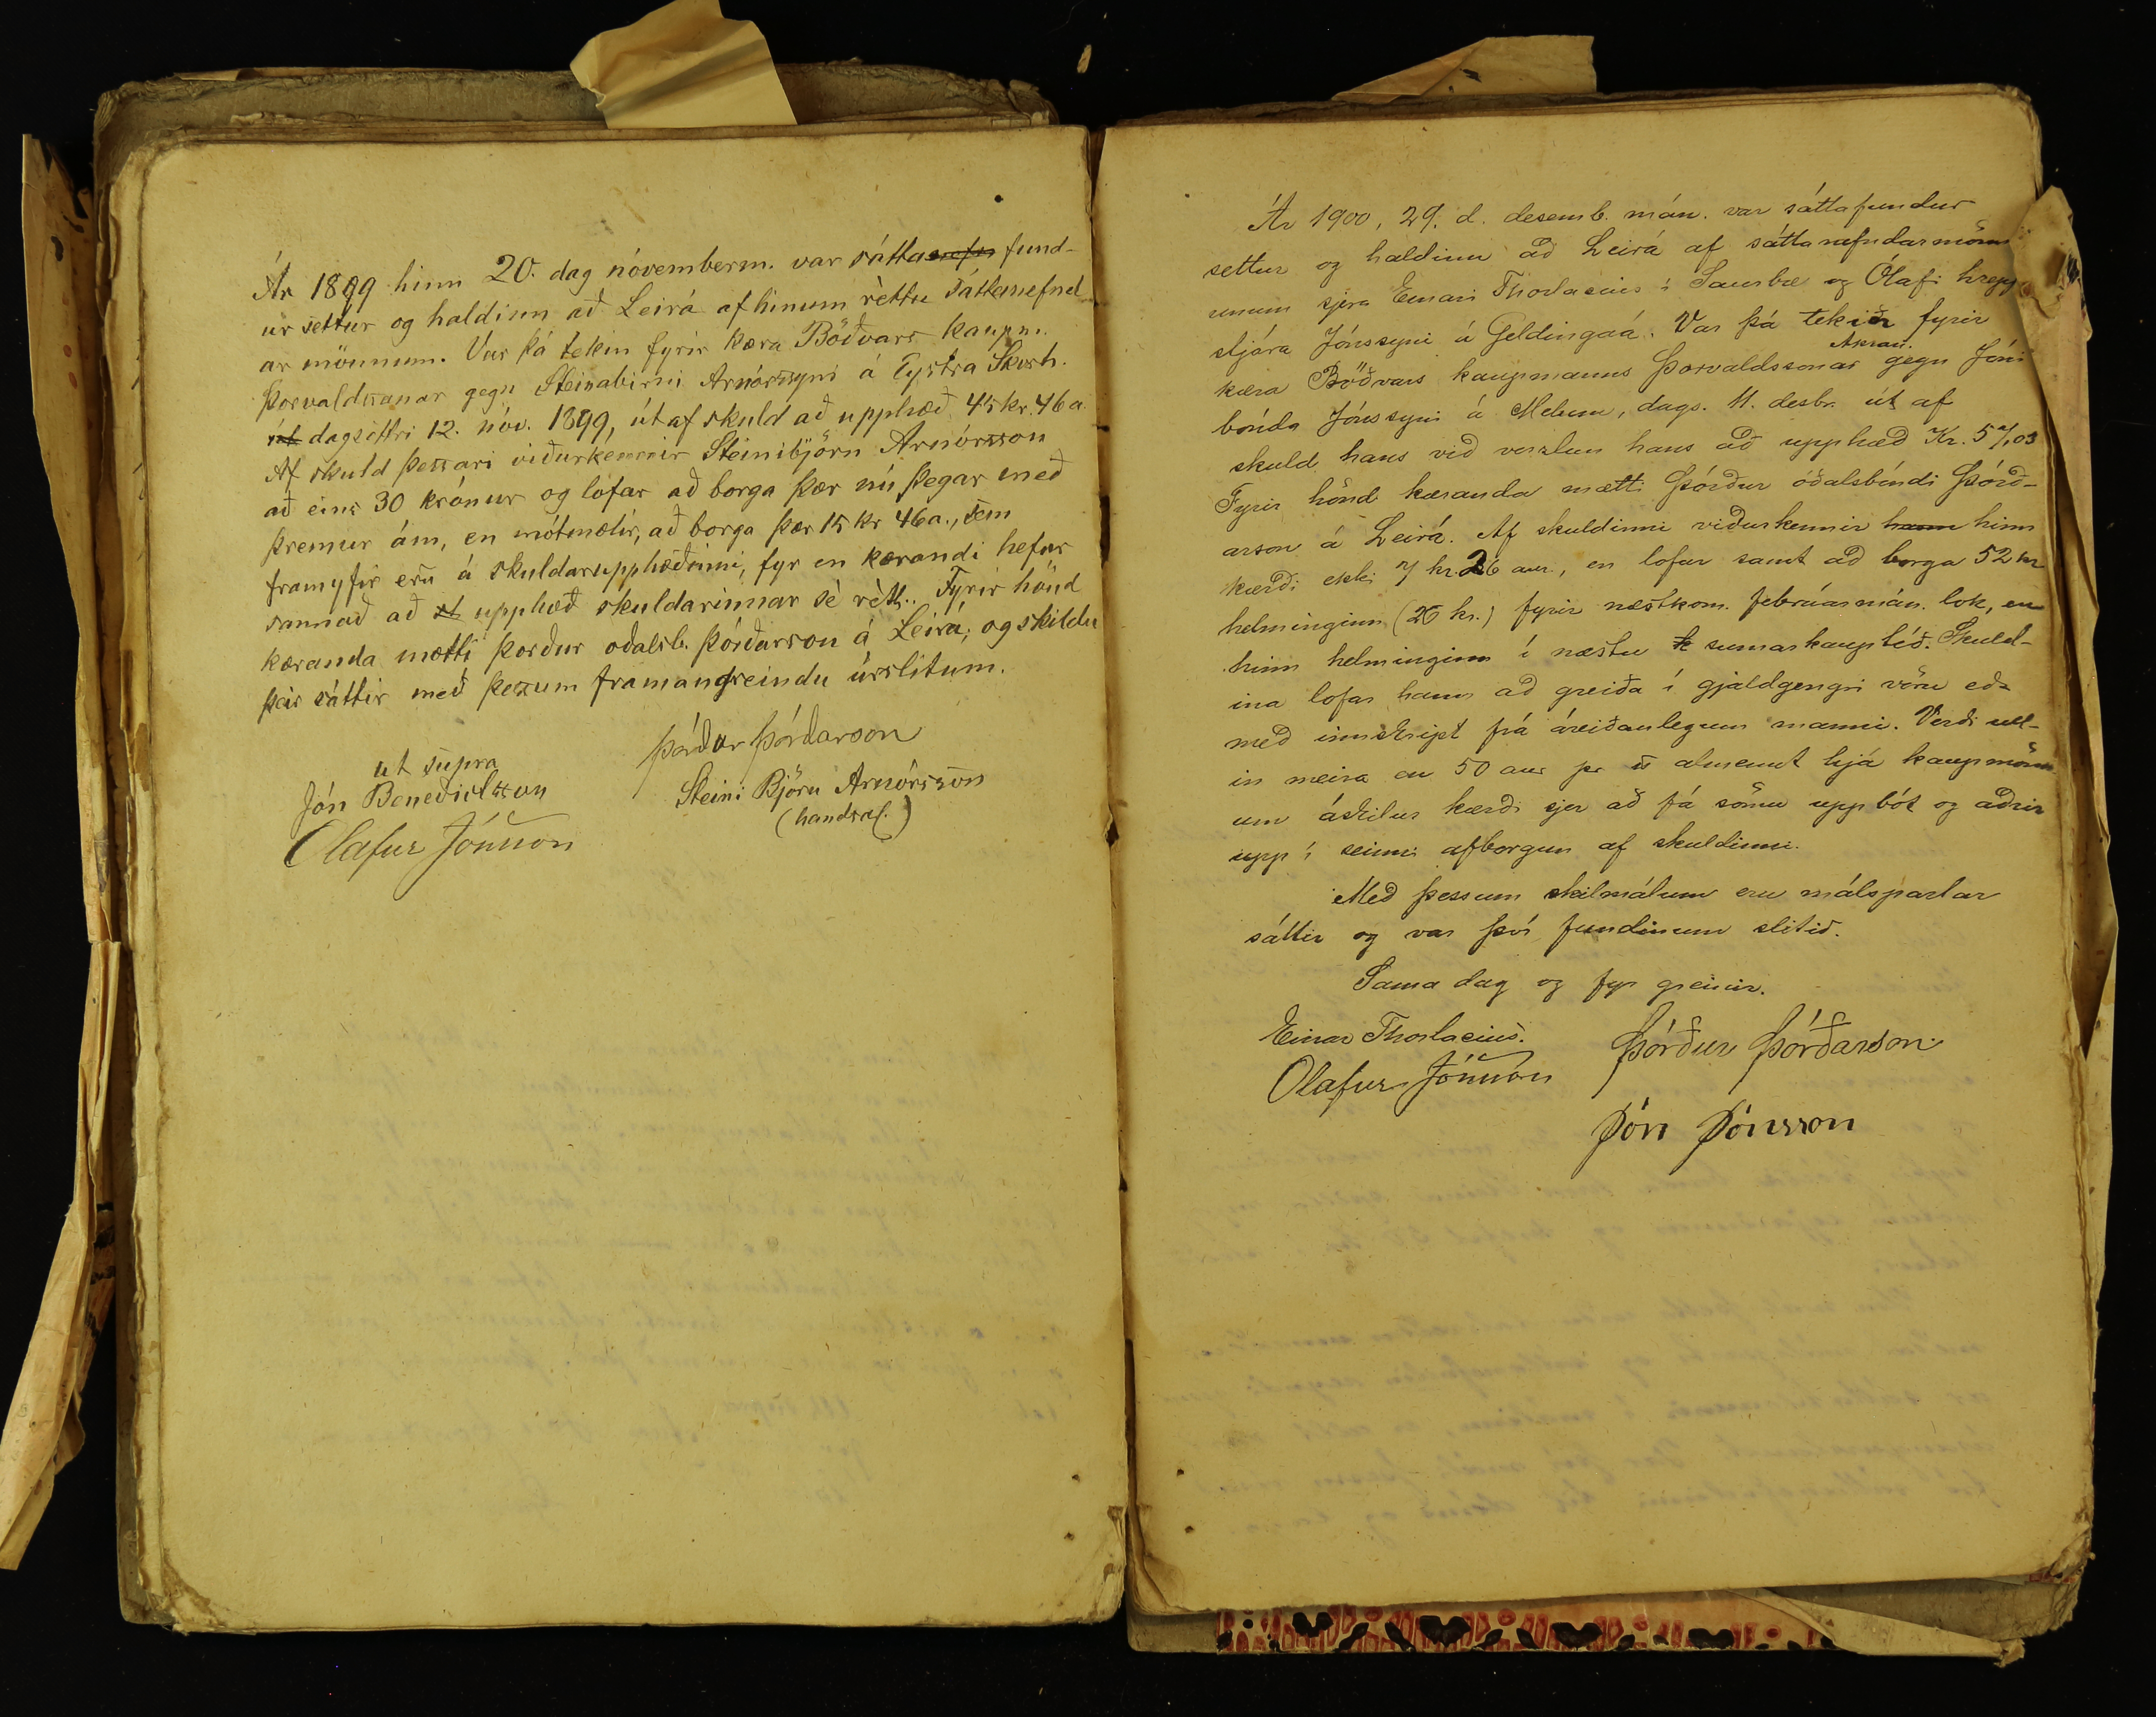 Ár 1899 hinn 20. dag nóvemberm. var sátta fund-
ur settur og haldinn að Leirá af hinum rèttu sáttanefnd
ar mönnum. Var þá tekin fyrir kæra Böðvars kaupm.
Þorvaldssonar gegn Steinabirni Arnórssyni á Eystra Skorh.
út dagsettri 12. nóv. 1899, út af skuld að upphæð 45 kr. 46 a.
Af skuld þessari viðurkennir Steinibjörn Arnórsson
að eins 30 krónur og lofar að borga þær nú þegar með
þremur ám, en mótmælir, að borga þær 15 kr 46 a., sem
framyfir eru á skuldarupphæðinni, fyr en kærandi hefur
sannað að upphæð skuldarinnar sè rètt. Fyrir hönd
kæranda mætti Þorður oðalsb. Þórðarson á Leirá; og skildu
þeir sáttir með þessum framangreindu úrslitum.
ut supra
Jón Benedictsson
Olafur Jónsson
Þórður Þórðarson
Steini Björn Arnórsson
(handsal.)
Ár 1900, 29. d. desemb. mán. var sáttafundur
settur og haldinn að Leirá af sáttanefndarmönn
unum sjera Einari Thorlacius í Saurbæ og Ólafi hrepp
stjóra Jónssyni á Geldingaá. Var þá tekin fyrir
Akran.
kæra Böðvars kaupmanns Þorvaldssonar gegn Jóni
bónda Jónssyni á Melum, dags. 11. desbr. út af
skuld hans við verzlun hans að upphæð Kr. 57,03
Fyrir hönd kæranda mætti Þórður óðalsbóndi Þórð-
arson á Leirá. Af skuldinni viðurkennir hann hinn
kærði ekki 7 kr. 26 aur., en lofar samt að borga 52 kr
helminginn (26 kr.) fyrir næstkom. febrúarmán. lok, en
hinn helminginn í næstu sumarkauptíð. Skuld-
ina lofar hann að greiða í gjaldgengri vöru eða
með innskript frá áreiðanlegum manni. Verði ull-
in meira en 50 aur pr almennt hjá kaupmönn
um áskilur kærði sjer að fá sömu uppbót og aðrir
upp í seinni afborgun af skuldinni.
Með þessum skilmálum eru málspartar
sáttir og var því fundinum slitið.
Sama dag og fyr greinir.
Einar Thorlacius.
Olafur Jónsson
Þórður Þórðarson
Jón Jónsson